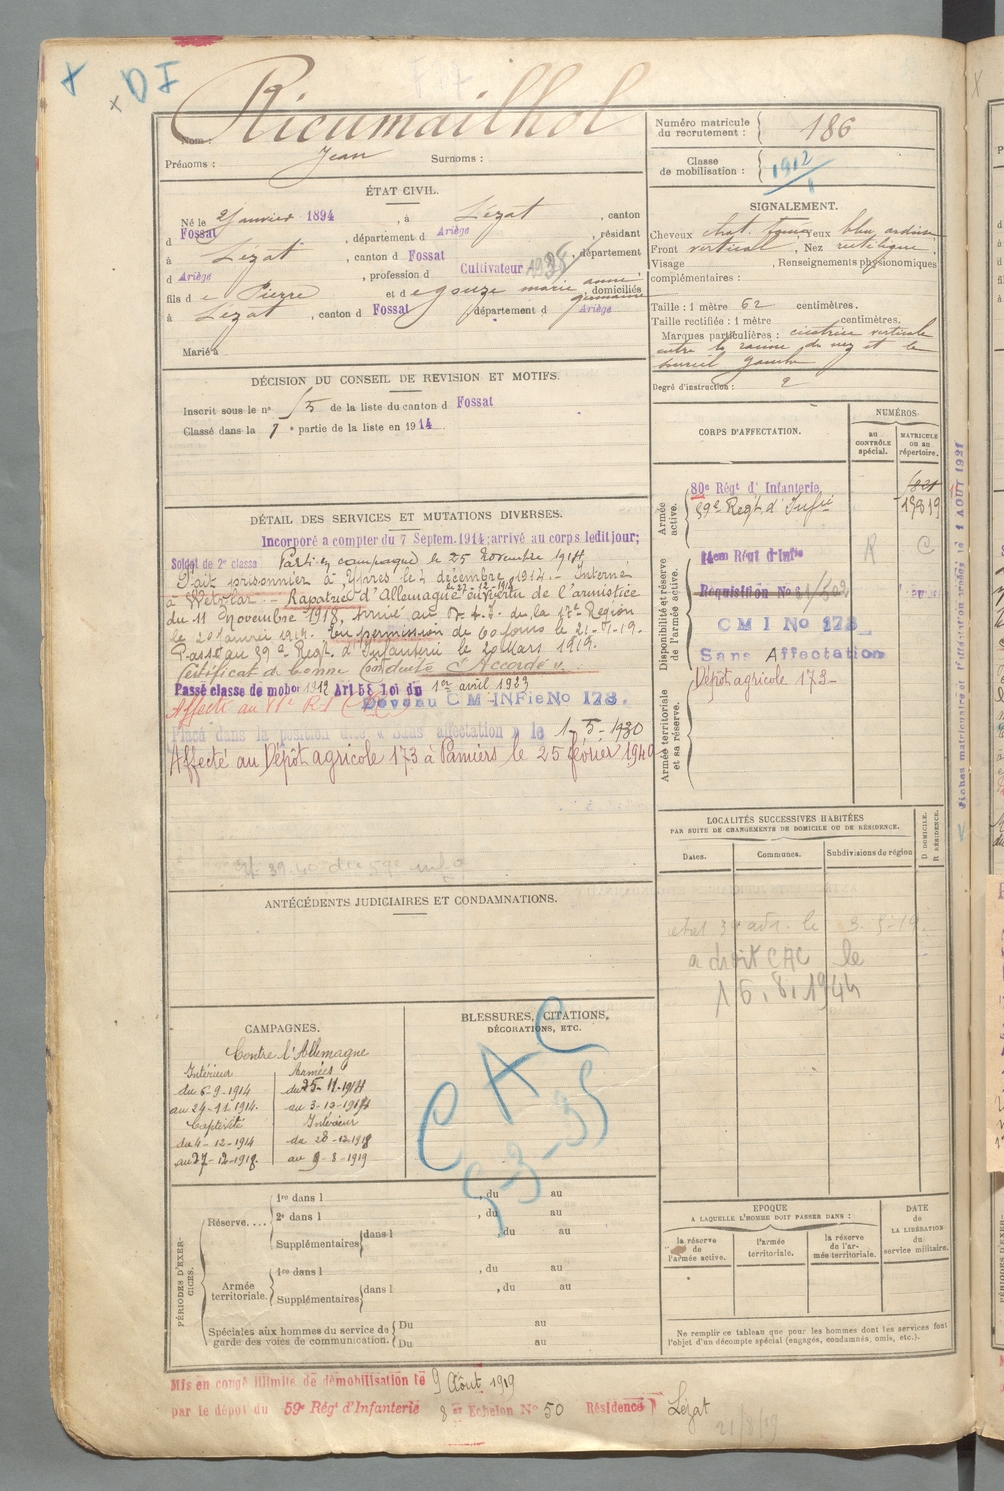 DI
Nom : Rieumailhol
Prénoms : Jean Surnoms :
Numéro matricule du recrutement : 186
Classe de mobilisation : 1912
ÉTAT CIVIL.
Né le 2 janvier 1894, à Lézat, canton
d Fossat, département d Ariège, résidant
à Lézat, canton d Fossat, département
d Ariège, profession d Cultivateur
fils de Pierre et de gouze marie anne germaine, domiciliés
à Lézat, canton d Fossat département d Ariège
Marié à
SIGNALEMENT.
Cheveux chat. Yeux bleu ardoisé
Front vertical, Nez rectiligne
Visage , Renseignements physionomiques
complémentaires :
Taille : 1 mètre 62 centimètres.
Taille rectifiée : 1 mètre centimètres.
Marques particulières : cicatrice verticale
entre la racine du nez et le
sourcil gauche
Degré d'instruction : 2
DÉCISION DU CONSEIL DE REVISION ET MOTIFS.
Inscrit sous le n° 15 de la liste du canton d Fossat
Classé dans la 1e partie de la liste en 1914
DÉTAIL DES SERVICES ET MUTATIONS DIVERSES.
Incorporé a compter du 7 Septem. 1914; arrivé au corps ledit jour;
Soldat de 2e classe Parti en campagne le 25 novembre 1914.
Fait prisonnier à Ypres le 4 décembre 1914. - Interné
à Wetzlar. - Rapatrié d'Allemagne le 27-12-1918 en vertu de l'armistice
du 11 Novembre 1918, Arrivé au de la 17e Région
le 20 janvier 1919. En permission de 60 jours le 21-1-19.
Passé au 59e Regt. d'Infanterie le 20 Mars 1919.
Certificat de bonne conduite "Accordé".
Passé classe de mobon 1912 Art 58 loi du 1er avril 1923
Affecté au R.I. Devenu C M INFie No 173.
Placé dans la position dite « Sans affectation » le 1-5-1930
Affecté au Dépôt agricole 173 à Pamiers le 25 février 1940
CORPS D'AFFECTATION.
NUMÉROS
au CONTRÔLE spécial.
MATRICULE ou au répertoire.
Armée active.
80e Régt d'Infanterie
59e Regt d'Infie 19819
Disponibilité et réserve de l'armée active.
14eme Régt d'Infie
R C
Réquisition No
C M I No 173
Sans Affectation
Armée territoriale et sa réserve.
Dépôt agricole 173
LOCALITÉS SUCCESSIVES HABITÉES
PAR SUITE DE CHANGEMENTS DE DOMICILE OU DE RÉSIDENCE.
Dates. Communes. Subdivisions de région
D DOMICILE. R RÉSIDENCE.
le 3.5.19.
a droit CAC le
16.8.1944
ANTÉCÉDENTS JUDICIAIRES ET CONDAMNATIONS.
CAMPAGNES.
Contre l'Allemagne
Intérieur
du 6-9-1914
au 24-11-1914.
Captivité
du 4-12-1914
au 27-12-1918.
Armées
du 25-11-1914
au 3-12-1914
Intérieur
du 28-12-1918
au 9-8-1919
BLESSURES, CITATIONS,
DÉCORATIONS, ETC.
CAC
5-3-35
PÉRIODES D'EXERCICES.
Réserve....
1re dans l , du au
2e dans l , du au
Supplémentaires dans l du au
Armée territoriale.
1re dans l , du au
Supplémentaires dans l , du au
Spéciales aux hommes du service de garde des voies de communication.
Du au
Du au
EPOQUE
A LAQUELLE L'HOMME DOIT PASSER DANS :
la réserve de l'armée active.
l'armée territoriale.
la réserve de l'armée territoriale.
DATE DE LA LIBÉRATION du service militaire.
Ne remplir ce tableau que pour les hommes dont les services font
l'objet d'un décompte spécial (engagés, condamnés, omis, etc.).
Mis en congé illimité de démobilisation le 9 Août 1919
par le dépôt du 59e Régt d'Infanterie 8 Echelon No 50 Résidence Lézat
21/8/19